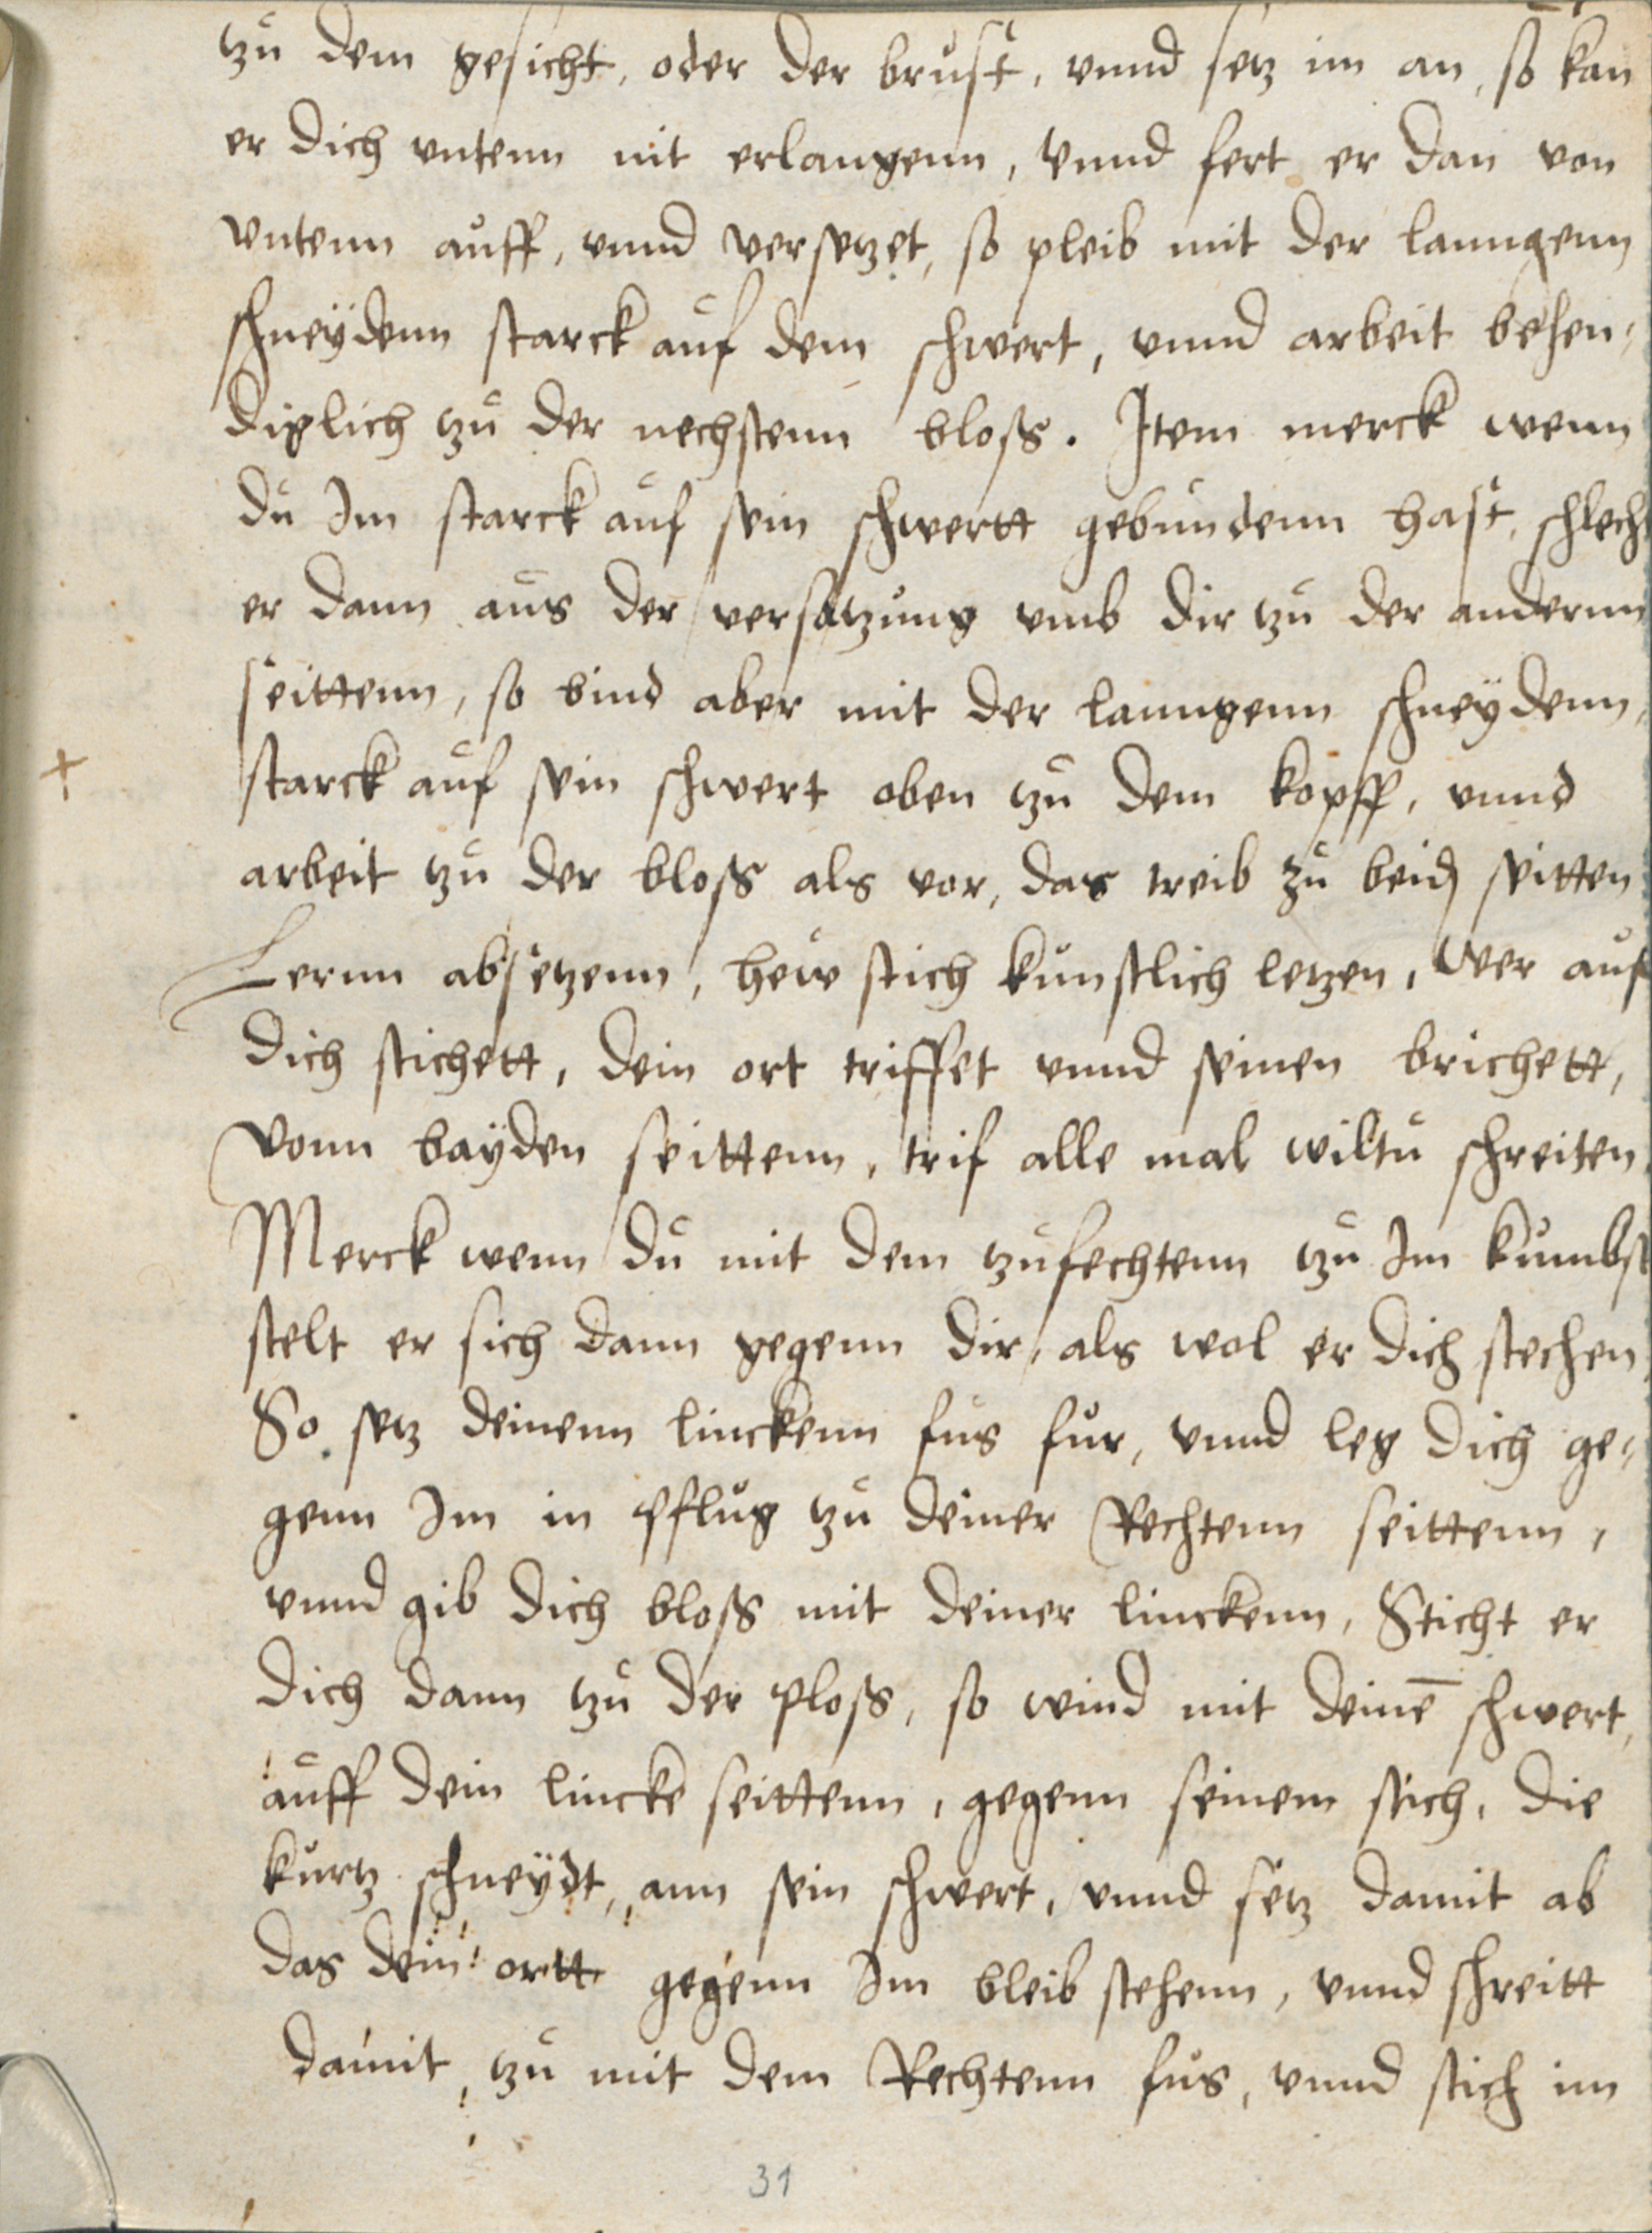 tzu dem gesicht, oder der brust, vnnd setz im an, so kan
er dich vntenn nit erlangenn, vnnd fert er dan von
vntenn auff, vnnd versetzet, so pleib mit der lanngenn
schneÿdenn starck auf dem schwert, vnnd arbeit behen„
diglich tzu der nechstenn bloss. Item merck wenn
du Im starck auf sein schwertt gebundenn hast, schlecht
er dann aus der versatzung vmb dir tzu der andernn
seittenn, so bind aber mit der lanngenn schneÿdenn,
starck auf sein schwert oben tzu dem kopff, vnnd
arbeit tzu der bloss als vor, das treib zu beid seitten
Lernn absetzenn, hew stich kunstlich letzen, Wer auf
dich stichett, dein ort triffet vnnd seinen brichett,
Vonn baÿden seittenn, trif alle mal wiltu schreiten.
Merck wenn du mit dem tzufechtenn tzu Im kumbst
stelt er sich dann gegenn dir, als wol er dich stechen.
So setz deinenn linckenn fus fur, vnnd leg dich ge„
genn Im in pflug tzu deiner Rechtenn seittenn,
vnnd gib dich bloss mit deiner linckenn, Sticht er
dich dann tzu der ploss, so wind mit deinē schwert,
auff dein lincke seittenn, gegenn seinem stich, die
kurtz schneÿdt, ann sein schwert, vnnd setz damit ab
das dein ortt gegenn Im bleib stehenn, vnnd schreitt
damit, tzu mit dem Rechtenn fus, vnnd stich im
31